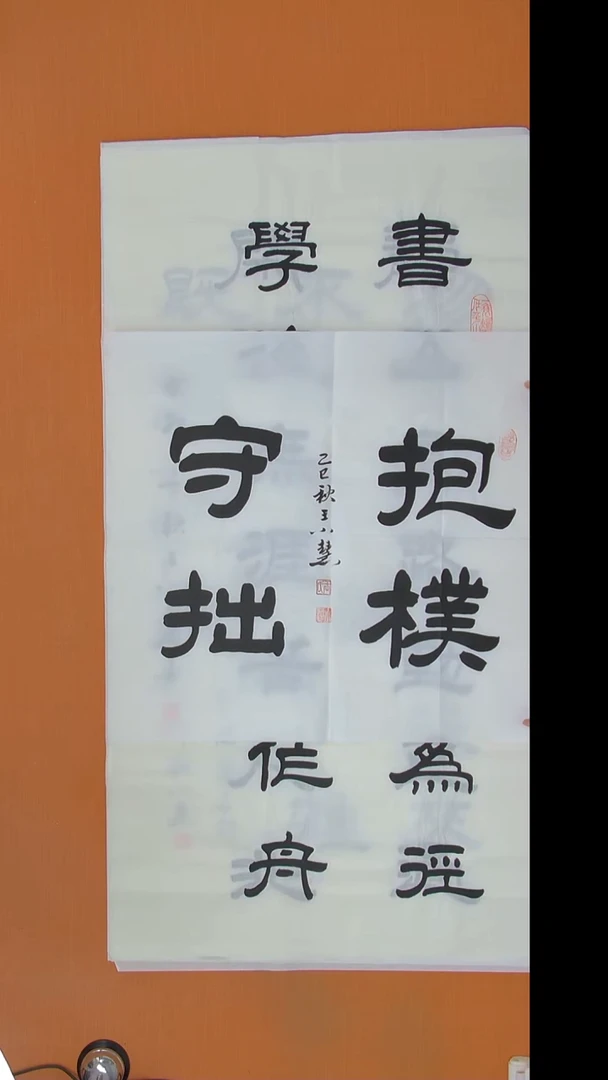 抱樸
守拙
乙巳秋王小慧
書
為徑
學
作舟